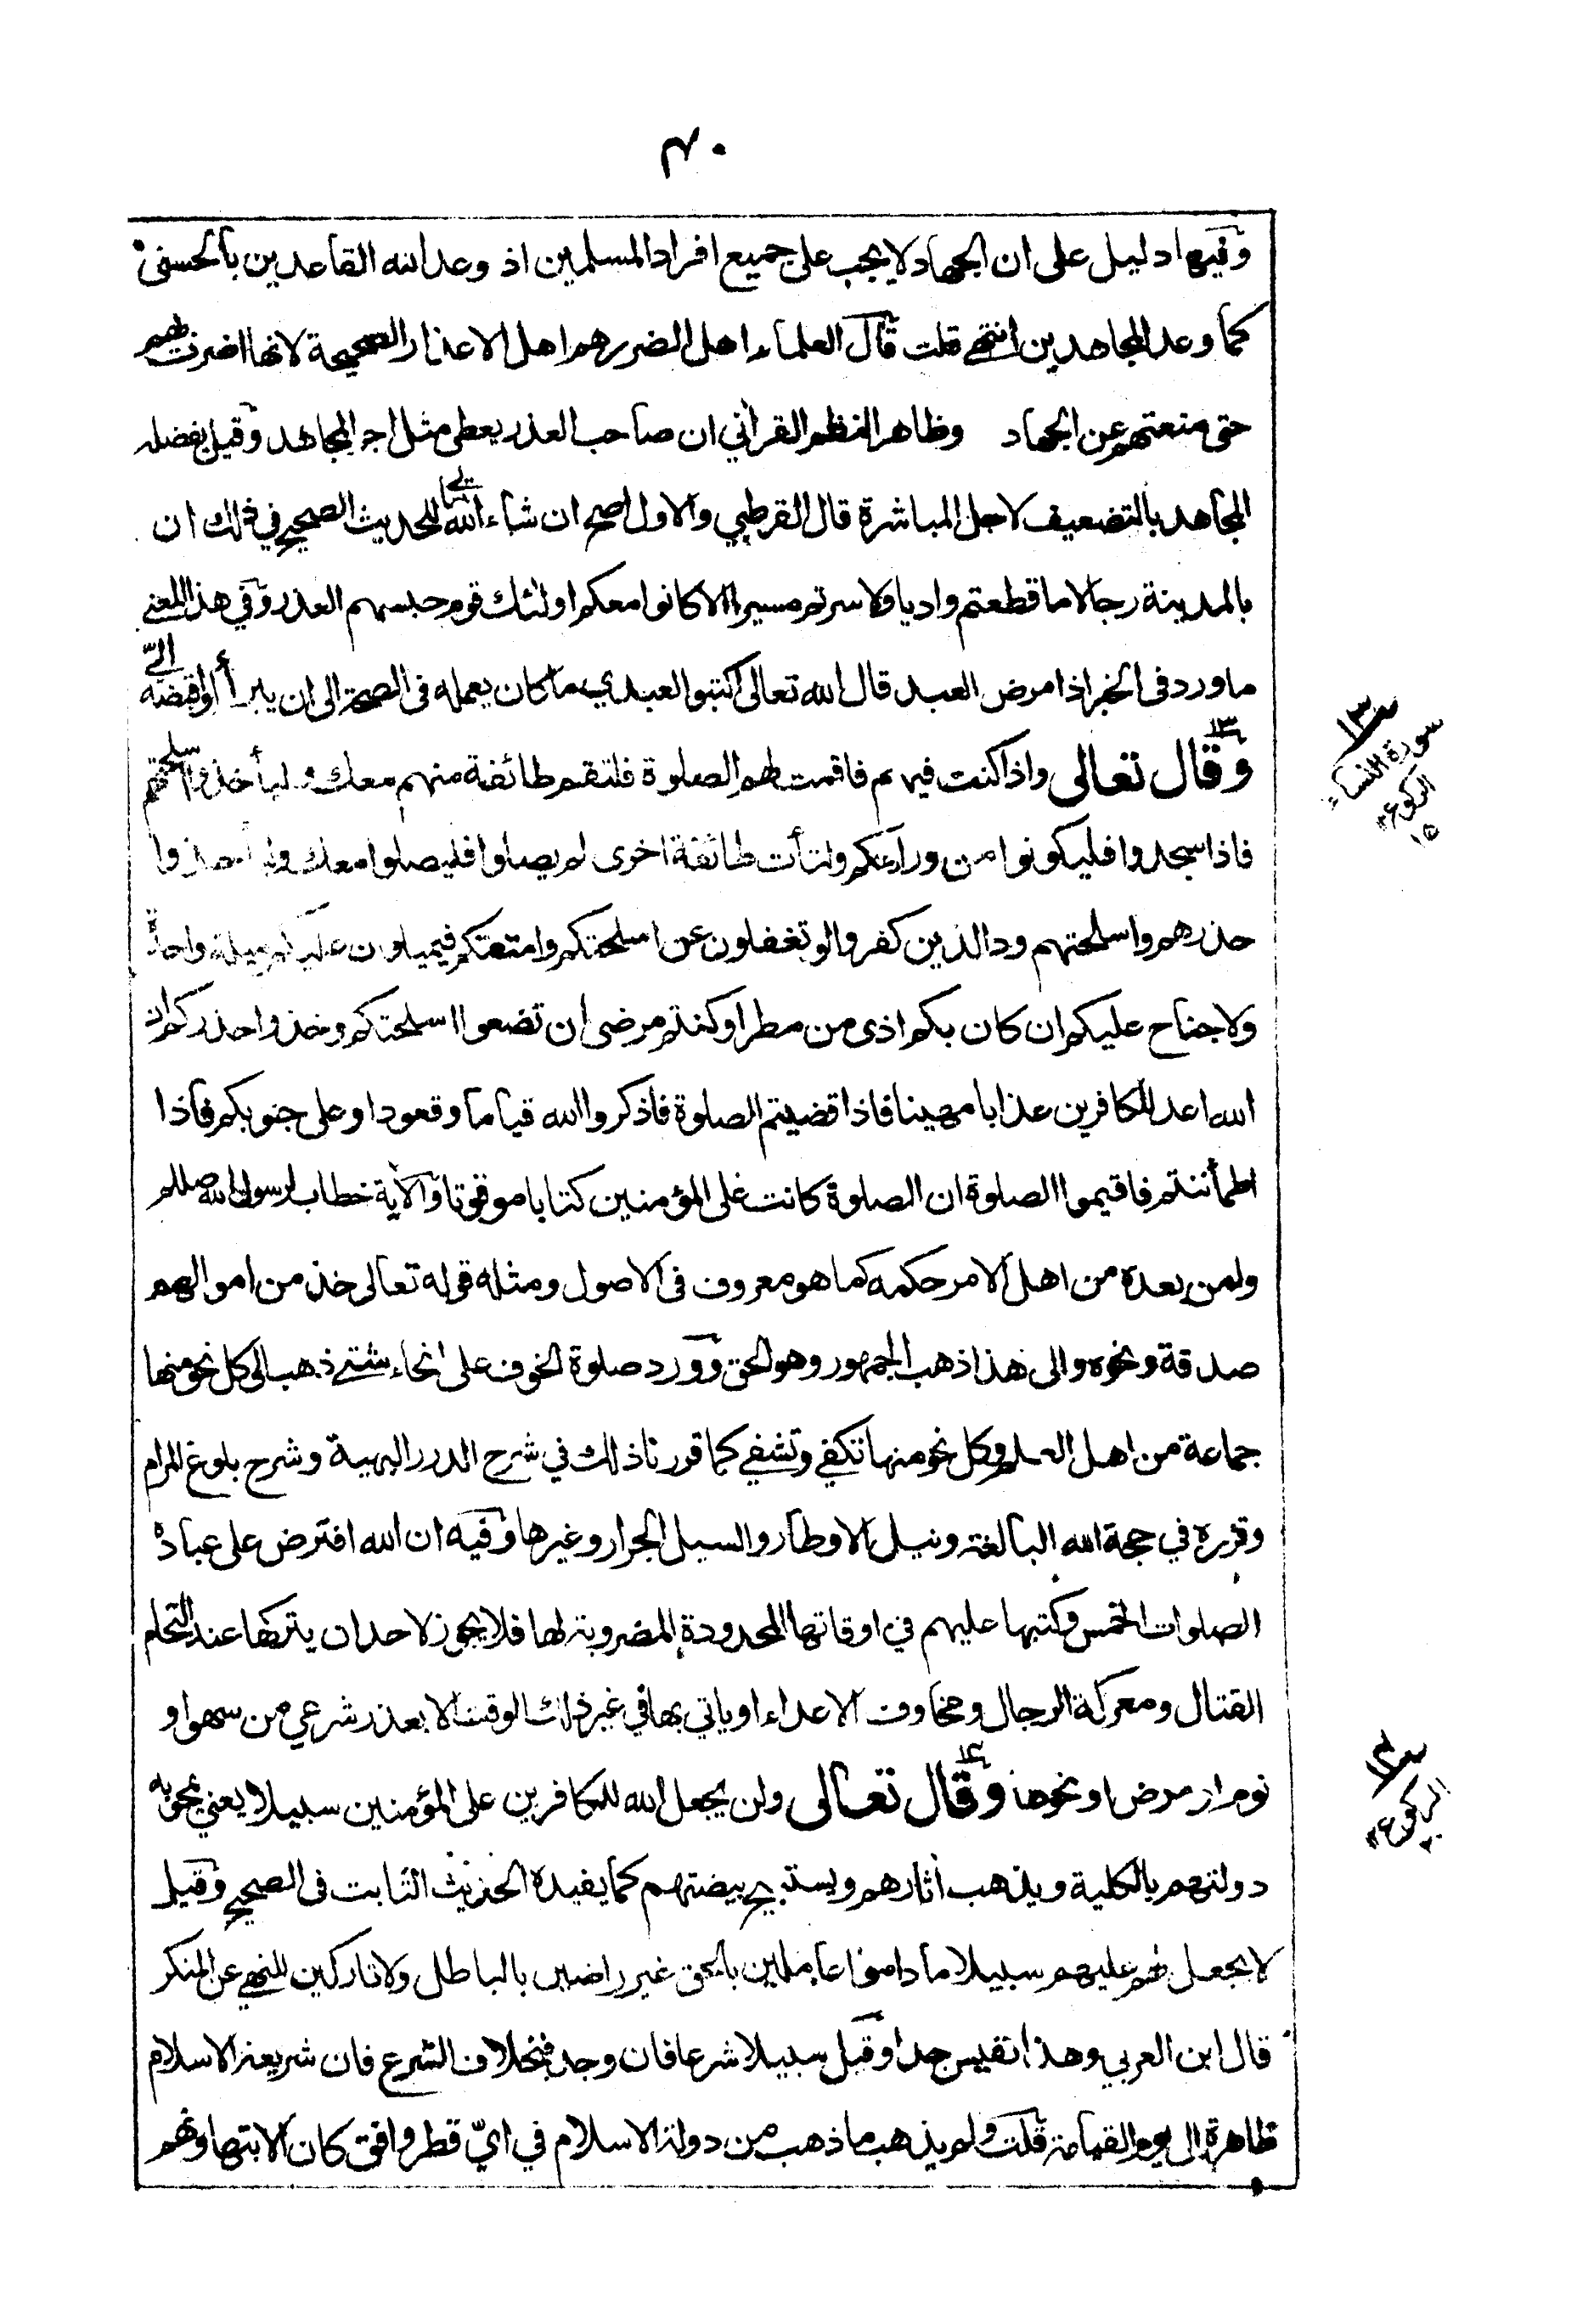 ۴۰
وفيها دليل على ان الجهاد لا يجب على جميع افراد المسلمين اذ وعد الله القاعدين بالحسنى
كما وعد المجاهدين انتهى قلت قال العلماء اهل الضرر هم اهل الاعذار الصحيحة لانها اضرت بهم
حتى منعتهم عن الجهاد وظاهر النظم القرأني ان صاحب العذر يعطى مثل اجر المجاهد وقيل يفضله
المجاهد بالتضعيف لاجل المباشرة قال القرطبي والاول اصح ان شاء الله تعالى للحديث الصحيح في ذلك ان
بالمدينة رجالا ما قطعتم واديا ولا سرتم مسيرا الا كانوا معكم اولئك قوم حبسهم العذر وفي هذا المعنى
ما ورد في الخبر اذا مرض العبد قال الله تعالى اكتبوا لعبدي ما كان يعمله في الصحة الى ان يبرأ او اقبضه الىّ
۱۳ وقال تعالى واذا كنت فيهم فاقمت لهم الصلوة فلتقم طائفة منهم معك وليأخذوا اسلحتهم
فاذا سجدوا فليكونوا من ورائكم ولتأت طائفة اخرى لم يصلوا فليصلوا معك وليأخذوا
حذرهم واسلحتهم ود الذين كفروا لو تغفلون عن اسلحتكم وامتعتكم فيميلون عليكم ميلة واحدة
ولا جناح عليكم ان كان بكم اذى من مطر او كنتم مرضى ان تضعوا اسلحتكم وخذوا حذركم ان
الله اعد للكافرين عذابا مهينا فاذا قضيتم الصلوة فاذكروا الله قياما وقعودا وعلى جنوبكم فاذا
اطمأننتم فاقيموا الصلوة ان الصلوة كانت على المؤمنين كتابا موقوتا والآية خطاب لرسول الله صللم
ولمن بعده من اهل الامر حكمه كما هو معروف في الاصول ومثله قوله تعالى خذ من اموالهم
صدقة ونحوه والى هذا ذهب الجمهور وهو الحق وورد صلوة الخوف على انحاء شتى ذهب الى كل نحو منها
جماعة من اهل العلم وكل نحو منها تكفي وتشفي كما قررنا ذلك في شرح الدرر البهية وشرح بلوغ المرام
وقرره في حجة الله البالغة ونيل الاوطار والسيل الجرار وغيرها وفيه ان الله افترض على عباده
الصلوات الخمس وكتبها عليهم في اوقاتها المحدودة المضروبة لها فلا يجوز لاحد ان يتركها عند التحام
القتال ومعركة الرجال ومخاوف الاعداء او ياتي بها في غير ذلك الوقت الا بعذر شرعي من سهو او
نوم او مرض او نحوها ۱۴ وقال تعالى ولن يجعل الله للكافرين على المؤمنين سبيلا يعني يمحو به
دولتهم بالكلية ويذهب أثارهم ويستبيح بيضتهم كما يفيده الحديث الثابت في الصحيح وقيل
لا يجعل لهم عليهم سبيلا ما داموا عاملين بالحق غير راضين بالباطل ولا تاركين للنهي عن المنكر
قال ابن العربي وهذا نفيس جدا وقيل سبيلا شرعا فان وجد فبخلاف الشرع فان شريعة الاسلام
ظاهرة الى يوم القيامة قلت ولم يذهب ما ذهب من دولة الاسلام في ايّ قطر وافق كان الا بتهاونهم
۱۳
سورة النساء
الركوع
۱۵
۱۴
الركوع